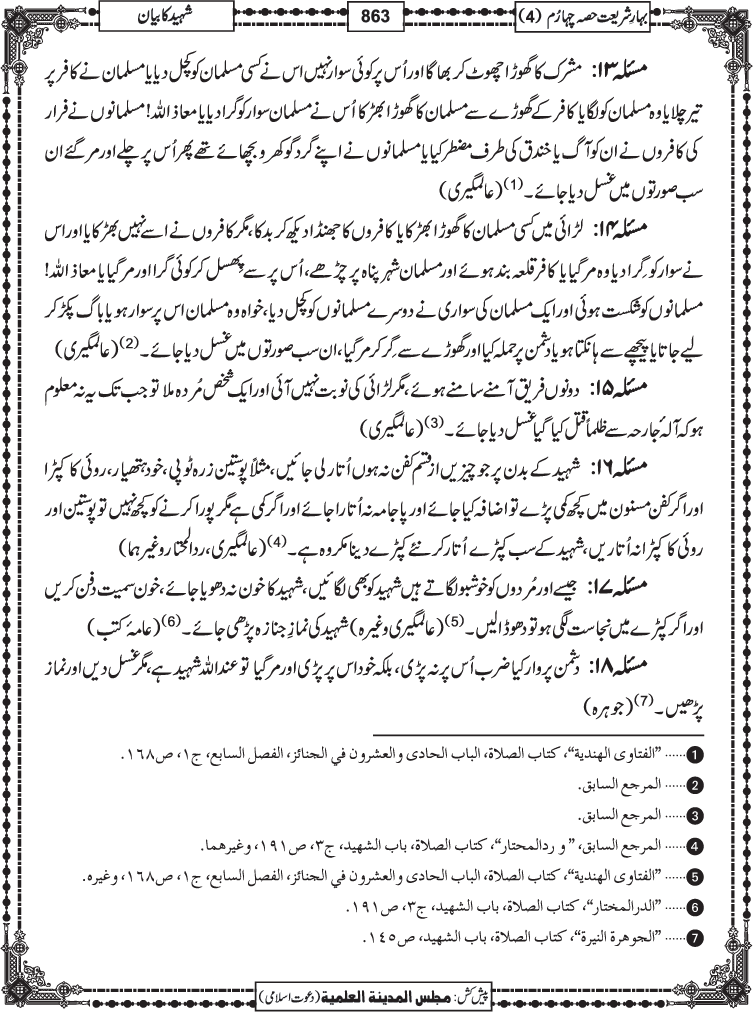 بہار شریعت حصہ چہارم (4)
863
شہید کا بیان
مسئلہ ۱۳: مشرک کا گھوڑا چھوٹ کر بھاگا اور اُس پر کوئی سوار نہیں اس نے کسی مسلمان کو کچل دیا یا مسلمان نے کافر پر
تیر چلایا وہ مسلمان کو لگا یا کافر کے گھوڑے سے مسلمان کا گھوڑا بھڑکا اُس نے مسلمان سوار کو گرا دیا یا معاذ اللہ! مسلمانوں نے فرار
کی کافروں نے ان کو آگ یا خندق کی طرف مضطر کیا یا مسلمانوں نے اپنے گرد گوکھرو بچھائے تھے پھر اُس پر چلے اور مر گئے ان
سب صورتوں میں غسل دیا جائے۔ (1) (عالمگیری)
مسئلہ ۱۴: لڑائی میں کسی مسلمان کا گھوڑا بھڑکا یا کافروں کا جھنڈا دیکھ کر بدکا، مگر کافروں نے اسے نہیں بھڑکایا اور اس
نے سوار کو گرا دیا وہ مر گیا یا کافر قلعہ بند ہوئے اور مسلمان شہر پناہ پر چڑھے، اُس پر سے پھسل کر کوئی گرا اور مر گیا یا معاذ اللہ!
مسلمانوں کو شکست ہوئی اور ایک مسلمان کی سواری نے دوسرے مسلمانوں کو کچل دیا، خواہ وہ مسلمان اس پر سوار ہو یا باگ پکڑ کر
لیے جاتا یا پیچھے سے ہانکتا ہو یا دشمن پر حملہ کیا اور گھوڑے سے گر کر مر گیا، ان سب صورتوں میں غسل دیا جائے۔ (2) (عالمگیری)
مسئلہ ۱۵: دونوں فریق آمنے سامنے ہوئے، مگر لڑائی کی نوبت نہیں آئی اور ایک شخص مُردہ ملا تو جب تک یہ نہ معلوم
ہو کہ آلۂ جارحہ سے ظلماً قتل کیا گیا غسل دیا جائے۔ (3) (عالمگیری)
مسئلہ ۱۶: شہید کے بدن پر جو چیزیں از قسم کفن نہ ہوں اُتار لی جائیں، مثلاً پوستین زرہ ٹوپی، خود ہتھیار، روئی کا کپڑا
اور اگر کفن مسنون میں کچھ کمی پڑے تو اضافہ کیا جائے اور پاجامہ نہ اُتارا جائے اور اگر کمی ہے مگر پورا کرنے کو کچھ نہیں تو پوستین اور
روئی کا کپڑا نہ اُتاریں، شہید کے سب کپڑے اُتار کر نئے کپڑے دینا مکروہ ہے۔ (4) (عالمگیری، ردالمحتار وغیرہما)
مسئلہ ۱۷: جیسے اور مُردوں کو خوشبو لگاتے ہیں شہید کو بھی لگائیں، شہید کا خون نہ دھویا جائے، خون سمیت دفن کریں
اور اگر کپڑے میں نجاست لگی ہو تو دھو ڈالیں۔ (5) (عالمگیری وغیرہ) شہید کی نمازِ جنازہ پڑھی جائے۔ (6) (عامۂ کتب)
مسئلہ ۱۸: دشمن پر وار کیا ضرب اُس پر نہ پڑی، بلکہ خود اس پر پڑی اور مر گیا تو عند اللہ شہید ہے، مگر غسل دیں اور نماز
پڑھیں۔ (7) (جوہرہ)
1 ...... "الفتاوی الهندية"، كتاب الصلاة، الباب الحادی والعشرون في الجنائز، الفصل السابع، ج١، ص١٦٨.
2 ...... المرجع السابق.
3 ...... المرجع السابق.
4 ...... المرجع السابق، " و ردالمحتار"، كتاب الصلاة، باب الشهيد، ج٣، ص١٩١، وغيرهما.
5 ...... "الفتاوی الهندية"، كتاب الصلاة، الباب الحادی والعشرون في الجنائز، الفصل السابع، ج١، ص١٦٨، وغيره.
6 ...... "الدرالمختار"، كتاب الصلاة، باب الشهيد، ج٣، ص١٩١.
7 ...... "الجوهرة النيرة"، كتاب الصلاة، باب الشهيد، ص١٤٥.
پیش کش: مجلس المدینۃ العلمیۃ (دعوت اسلامی)